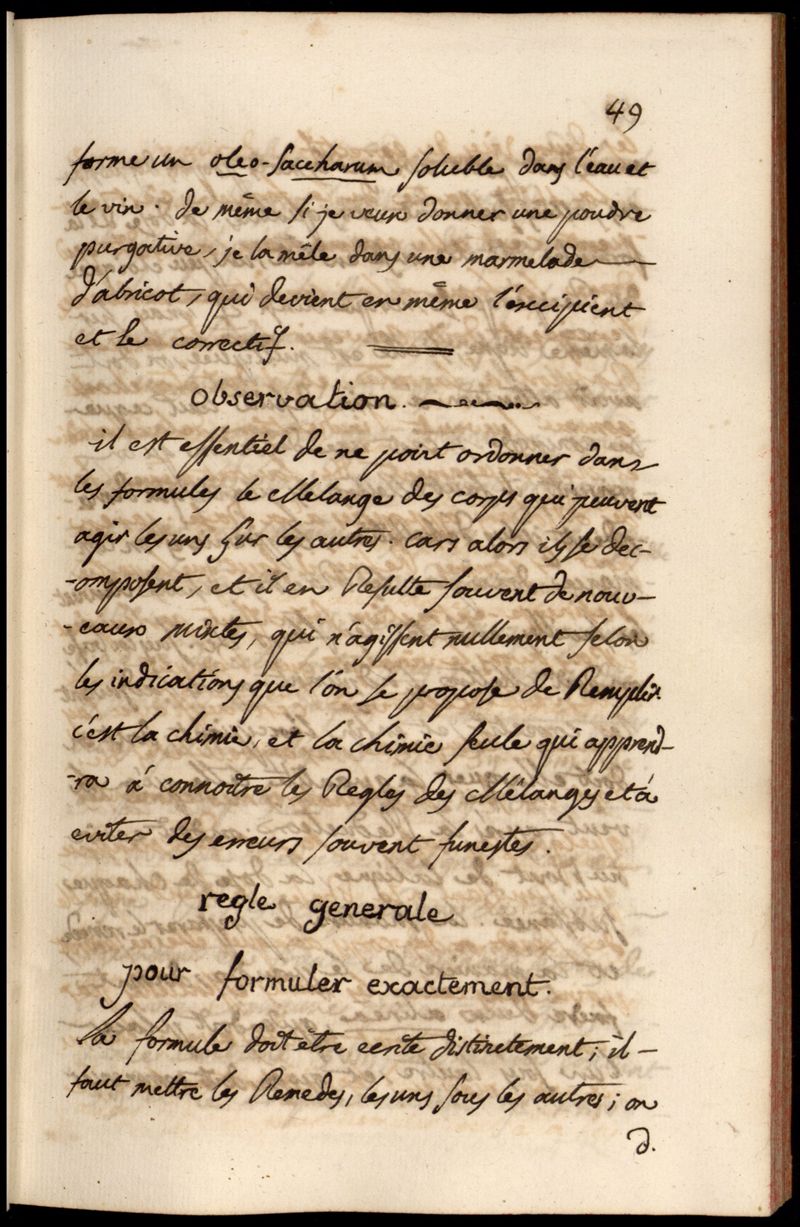 49
forme un oleo-saccharum soluble dans l'eau et
le vin. de même si je veux donner une poudre
purgative, je la mêle dans une marmelade
d'abricot, qui devient en même l'excipient
et le correctif.
observation.
il est essentiel de ne point ordonner dans
les formules le Melange des corps qui peuvent
agir les uns sur les autres. cars alors ils se dec-
-omposent, et il en Resulte souvent de nouv-
-eaux mixtes, qui n'agissent nullement selon
les indications que l'on se propose de Remplir.
c'est la chimie, et la chimie seule qui apprend-
-ra à connoitre les Regles des Mélanges et à
eviter des erreurs souvent funestes.
regle generale
pour formuler exactement.
la formule doit être ecrite distinctement; il-
faut mettre les Remedes, les uns sous les autres; on
d.